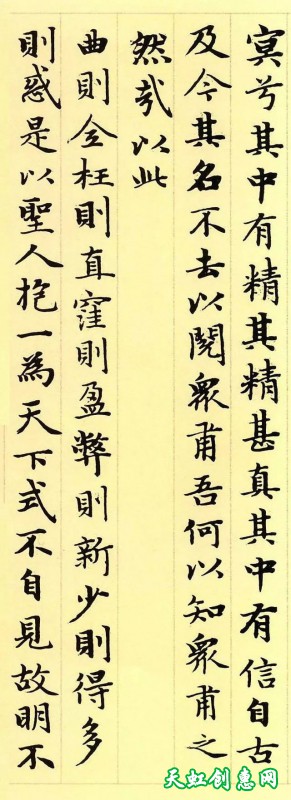 冥兮其中有精其精甚真其中有信自古
及今其名不去以閱眾甫吾何以知眾甫之
然哉以此
曲則全枉則直窪則盈弊則新少則得多
則惑是以聖人抱一為天下式不自見故明不
天虹创惠网